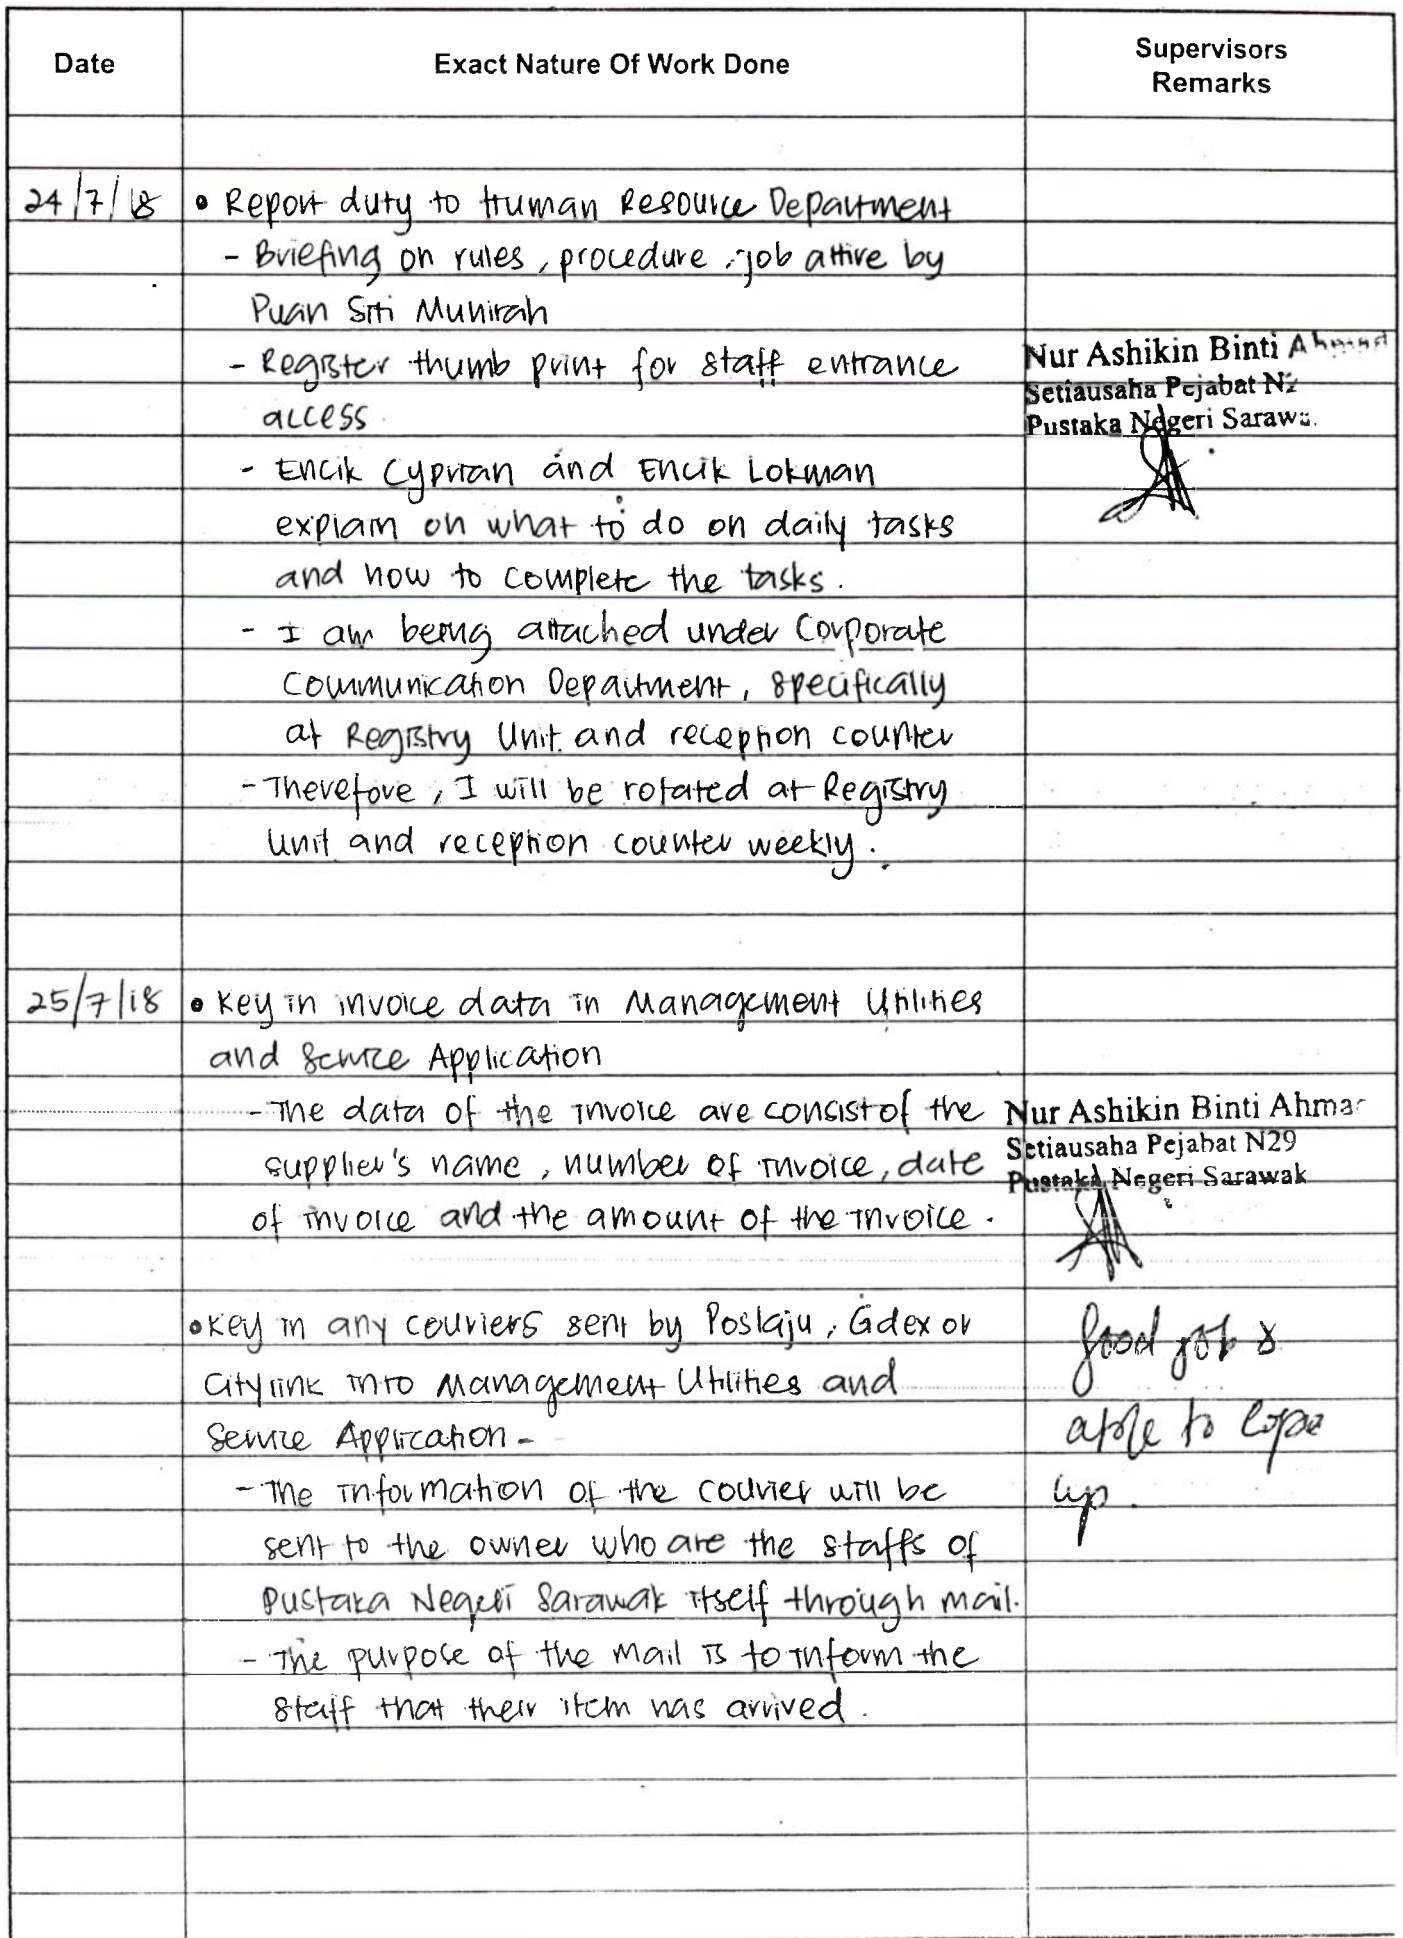 Date
Exact Nature Of Work Done
Supervisors
Remarks
24/7/18
• Report duty to Human Resource Department
- Briefing on rules, procedure, job attire by
Puan Siti Munirah
- Register thumb print for staff entrance
access.
- Encik Cyprian and Encik Lokman
explain on what to do on daily tasks
and how to complete the tasks.
- I am being attached under Corporate
Communication Department, specifically
at Registry Unit and reception counter
- Therefore, I will be rotated at Registry
Unit and reception counter weekly.
Nur Ashikin Binti Ahmad
Setiausaha Pejabat
Pustaka Negeri
25/7/18
• Key in invoice data in Management Utilities
and Service Application
- The data of the invoice are consist of the
supplier's name, number of invoice, date
of invoice and the amount of the invoice.
• Key in any couriers sent by Poslaju, Gdex or
Citylink into Management Utilities and
Service Application -
- The information of the courier will be
sent to the owner who are the staffs of
Pustaka Negeri Sarawak itself through mail.
- The purpose of the mail is to inform the
staff that their item has arrived.
Nur Ashikin Binti Ahmad
Setiausaha Pejabat N29
Pustaka Negeri Sarawak
Good job &
able to cope
up.